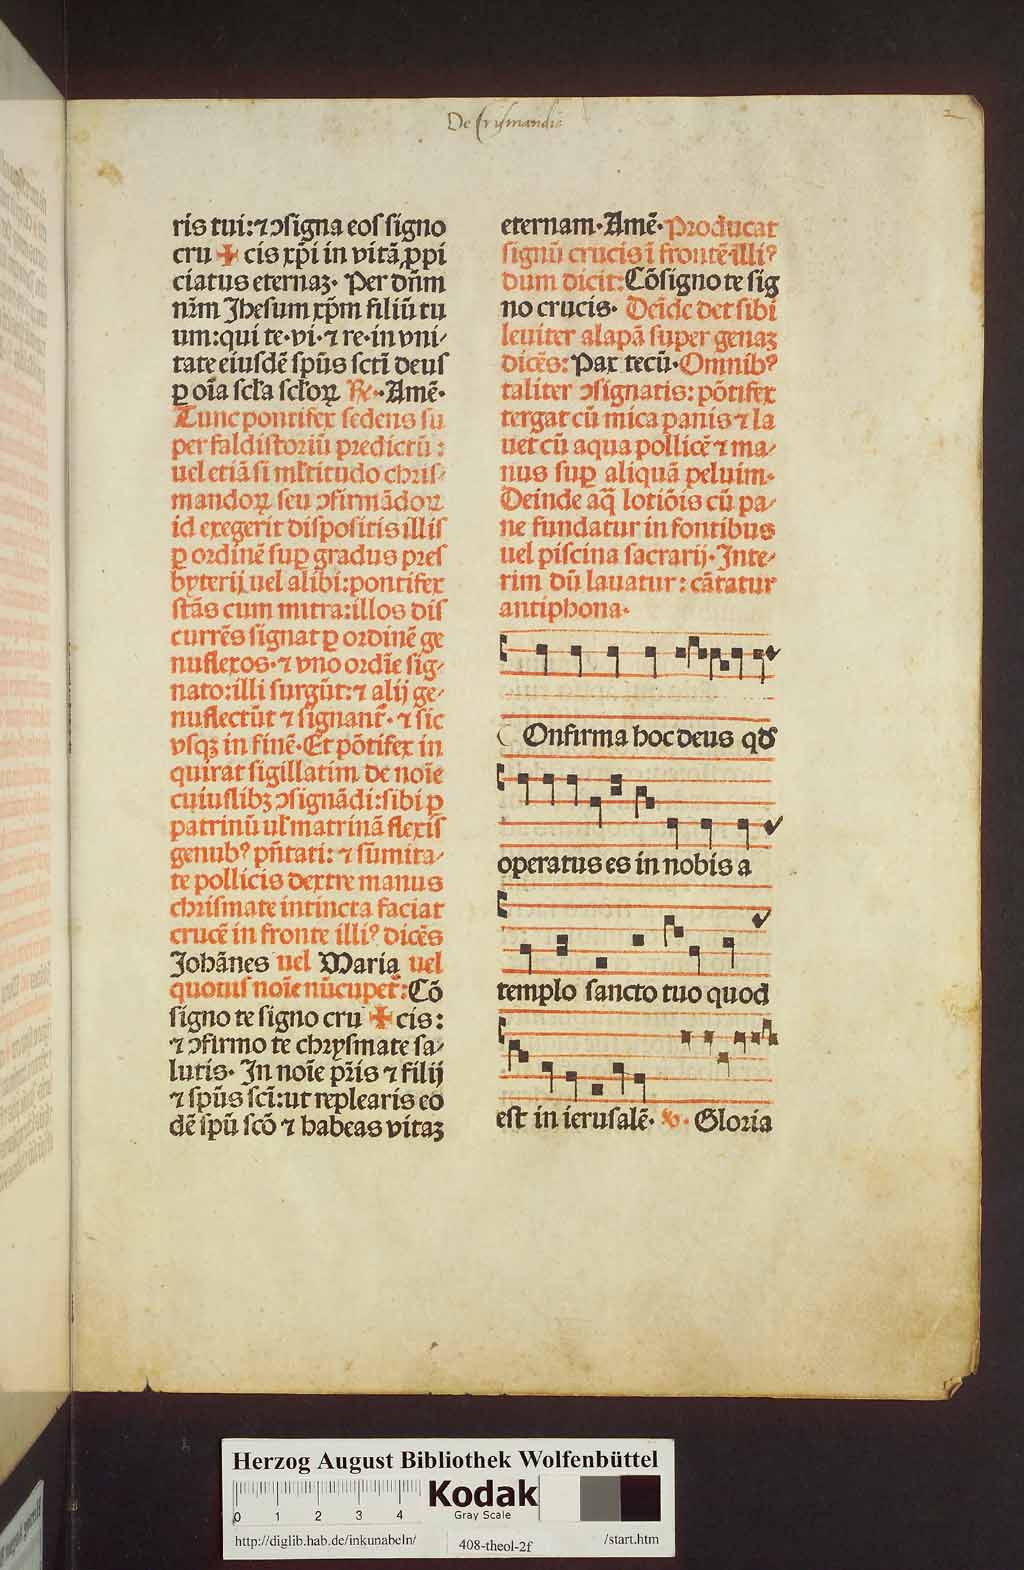 De crismandis
2
ris tui: ⁊ ↄsigna eos signo
cru ✠ cis xp̄i in vitā ꝓpi
ciatus eternaꝫ· Per dn̄m
nr̄m Jhesum xp̄m filiū tu
um: qui te·vi·⁊ re·in vni⸗
tate eiusdē sp̄us sctī deus
ꝑ oīa scl̄a scl̄oꝝ ℟··Amē·
Tunc pontifex sedens su
per faldistoriū predictū:
uel etiā si ml̄titudo chris⸗
mandoꝝ seu ↄfirmādoꝝ
id exegerit dispositis illis
ꝑ ordinē suꝑ gradus pres
byterij uel alibi: pontifex
stās cum mitra: illos dis
currēs signat ꝑ ordinē ge
nuflexos·⁊ vno ordīe sig⸗
nato: illi surgūt: ⁊ alij ge⸗
nuflectūt ⁊ signant̄·⁊ sic
vsqꝫ in finē· Et pōtifex in
quirat sigillatim de noīe
cuiuslibꝫ ↄsignādi: sibi ꝑ
patrinū ul̄ matrinā flexis
genubꝰ pn̄tati: ⁊ sūmita⸗
te pollicis dextre manus
chrismate intincta faciat
crucē in fronte illiꝰ dicēs
Johānes uel Maria uel
quouis noīe nūcupet̄: Cō
signo te signo cru ✠ cis:
⁊ ↄfirmo te chrysmate sa⸗
lutis· In noīe pr̄is ⁊ filij
⁊ sp̄us scī: ut replearis eo
dē sp̄ū scō ⁊ habeas vitaꝫ
eternam· Amē· Producat
signū crucis ī frontē illiꝰ
dum dicit: Cōsigno te sig
no crucis· Deīde det sibi
leuiter alapā super genaꝫ
dicēs: Pax tecū· Omnibꝰ
taliter ↄsignatis: pōtifex
tergat cū mica panis ⁊ la
uet cū aqua pollicē ⁊ ma⸗
nus suꝑ aliquā peluim·
Deinde aq̄ lotiōis cū pa⸗
ne fundatur in fontibus
uel piscina sacrarij· Inte⸗
rim dū lauatur: cātatur
antiphona·
Onfirma hoc deus qd̄
operatus es in nobis a
templo sancto tuo quod
est in ierusalē· ℣· Gloria
Herzog August Bibliothek Wolfenbüttel
0 1 2 3 4
Kodak
Gray Scale
http://diglib.hab.de/inkunabeln/ 408-theol-2f /start.htm